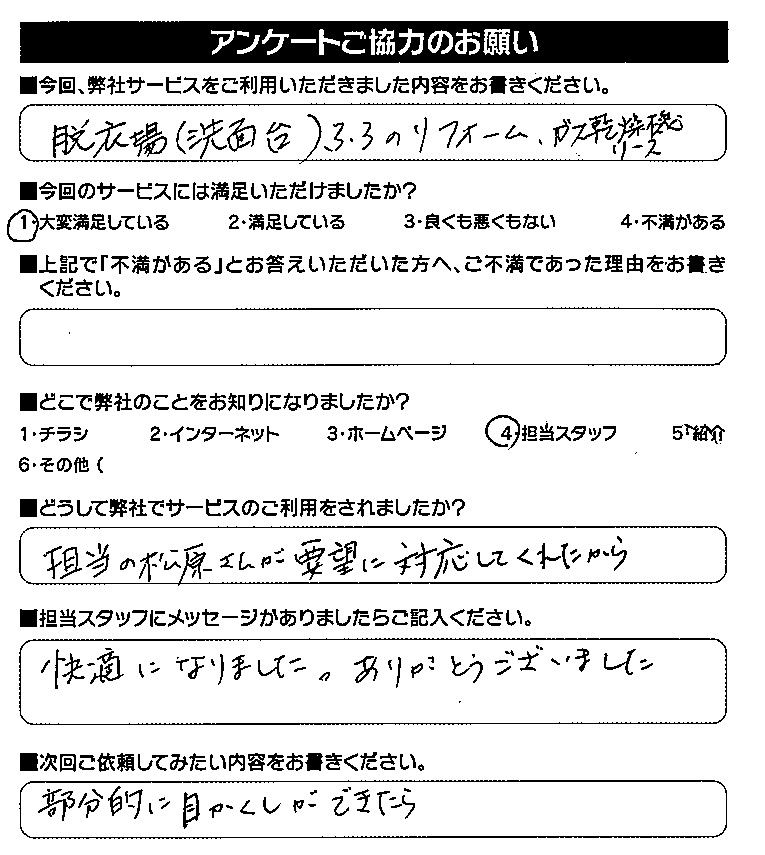 アンケートご協力のお願い
■今回、弊社サービスをご利用いただきました内容をお書きください。
脱衣場(洗面台)、ふろのリフォーム、ガス乾燥機
リース
■今回のサービスには満足いただけましたか?
1・大変満足している 2・満足している 3・良くも悪くもない 4・不満がある
■上記で「不満がある」とお答えいただいた方へ、ご不満であった理由をお書き
ください。
■どこで弊社のことをお知りになりましたか?
1・チラシ 2・インターネット 3・ホームページ 4・担当スタッフ 5・紹介
6・その他 (
■どうして弊社でサービスのご利用をされましたか?
担当の松原さんが要望に対応してくれたから
■担当スタッフにメッセージがありましたらご記入ください。
快適になりました。ありがとうございました
■次回ご依頼してみたい内容をお書きください。
部分的に目かくしができたら